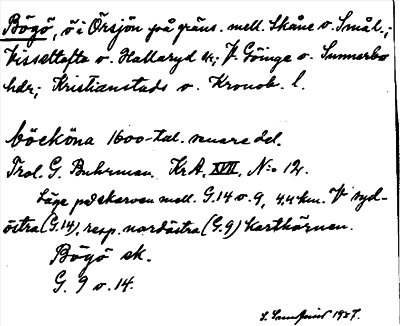 Bögö, ö i Örsjön på gräns. mell. Skåne o. Smål.;
Visseltofta o. Hallaryd sn; V. Göinge o. Sunnerbo
hdr; Kristianstads o. Kronob. l.
böeköna 1600-tal. senare del.
Trol. G. Buhrman. Kr A. XVII, N:o 12.
Läge på skarven mell. G.14 o. 9, 4,4 km. V syd-
östra (G.14), resp. nordöstra (G.9) kartkörnen.
Bögö sk.
G. 9 o. 14.
1927.